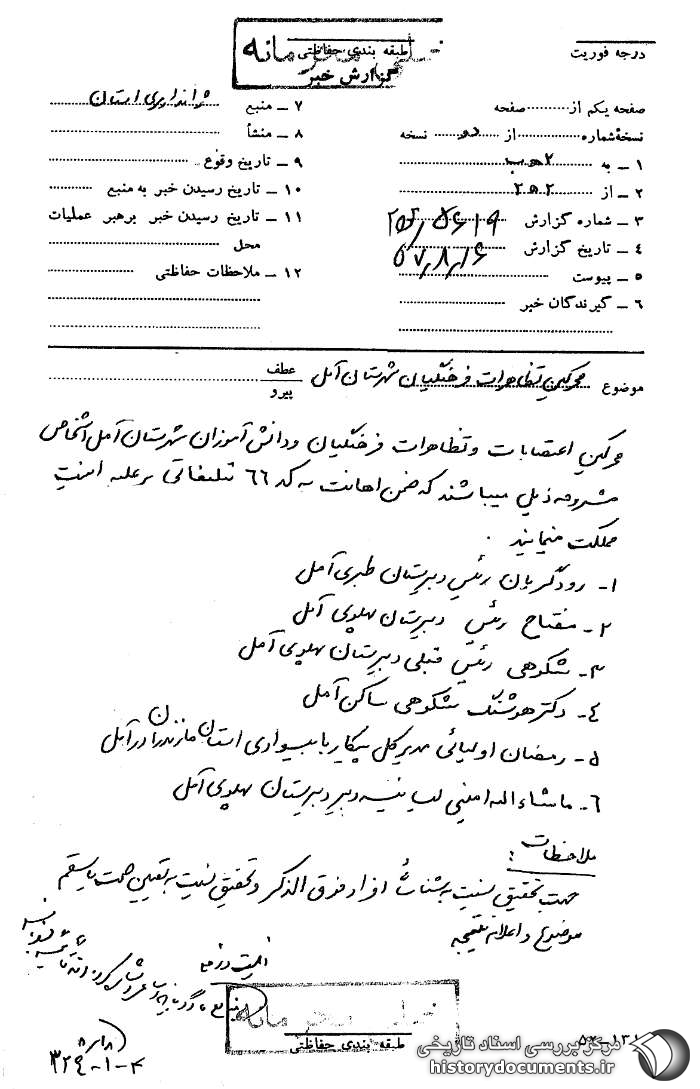 خیلی محرمانه
طبقه بندی حفاظتی
گزارش خبر
درجه فوریت
صفحه یکم از ........ صفحه
نسخهٔ شماره ........ از دو نسخه
۱ ـ به ۲ﻫ ب
۲ ـ از ۲ﻫ۲
۳ ـ شماره گزارش ۲ﻫ۲/۵۶۱۹
٤ ـ تاریخ گزارش ۵۷٫۸٫۱۶
۵ ـ پیوست
۶ ـ گیرندگان خبر
۷ ـ منبع ژاندارمری استان
۸ ـ منشأ
۹ ـ تاریخ وقوع
۱۰ ـ تاریخ رسیدن خبر به منبع
۱۱ ـ تاریخ رسیدن خبر برهبر عملیات
محل
۱۲ ـ ملاحظات حفاظتی
موضوع محرکین تظاهرات فرهنگیان شهرستان آمل
عطف
پیرو
محرکین اعتصابات و تظاهرات فرهنگیان و دانش آموزان شهرستان آمل اشخاص
مشروحه ذیل میباشند که ضمن اهانت به کد ۶۶ تبلیغاتی بر علیه امنیت
مملکت مینمایند .
۱- رودگریان رئیس دبیرستان طبری آمل
۲- مفتاح رئیس دبیرستان پهلوی آمل
۳- شکوهی رئیس قبلی دبیرستان پهلوی آمل
٤- دکتر هوشنگ شکوهی ساکن آمل
۵- رمضان اولیائی مدیر کل پیکار با بیسوادی استان مازندران در آمل
۶- ماشاء اله امینی لیسانسیه دبیر دبیرستان پهلوی آمل
ملاحظات :
جهت تحقیق نسبت به شناسائی افراد فوق الذکر و تحقیق نسبت به تعیین صحت یا سقم
موضوع و اعلام نتیجه
امنیت داخلی
خیلی محرمانه
طبقه بندی حفاظتی
۳۲۴-۱-۴
مرکز بررسی اسناد تاریخی
historydocuments.ir